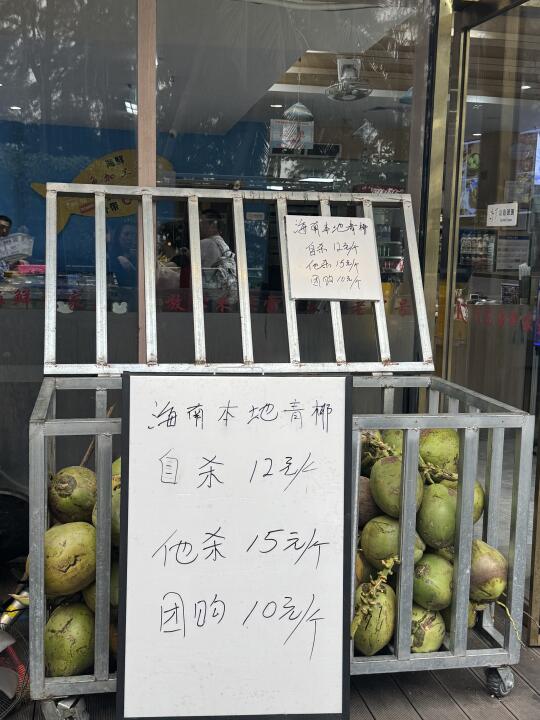 海南本地青椰
自杀 12元/个
他杀 15元/个
团购 10元/个
海南本地青椰
自杀 12元/个
他杀 15元/个
团购 10元/个
海鲜